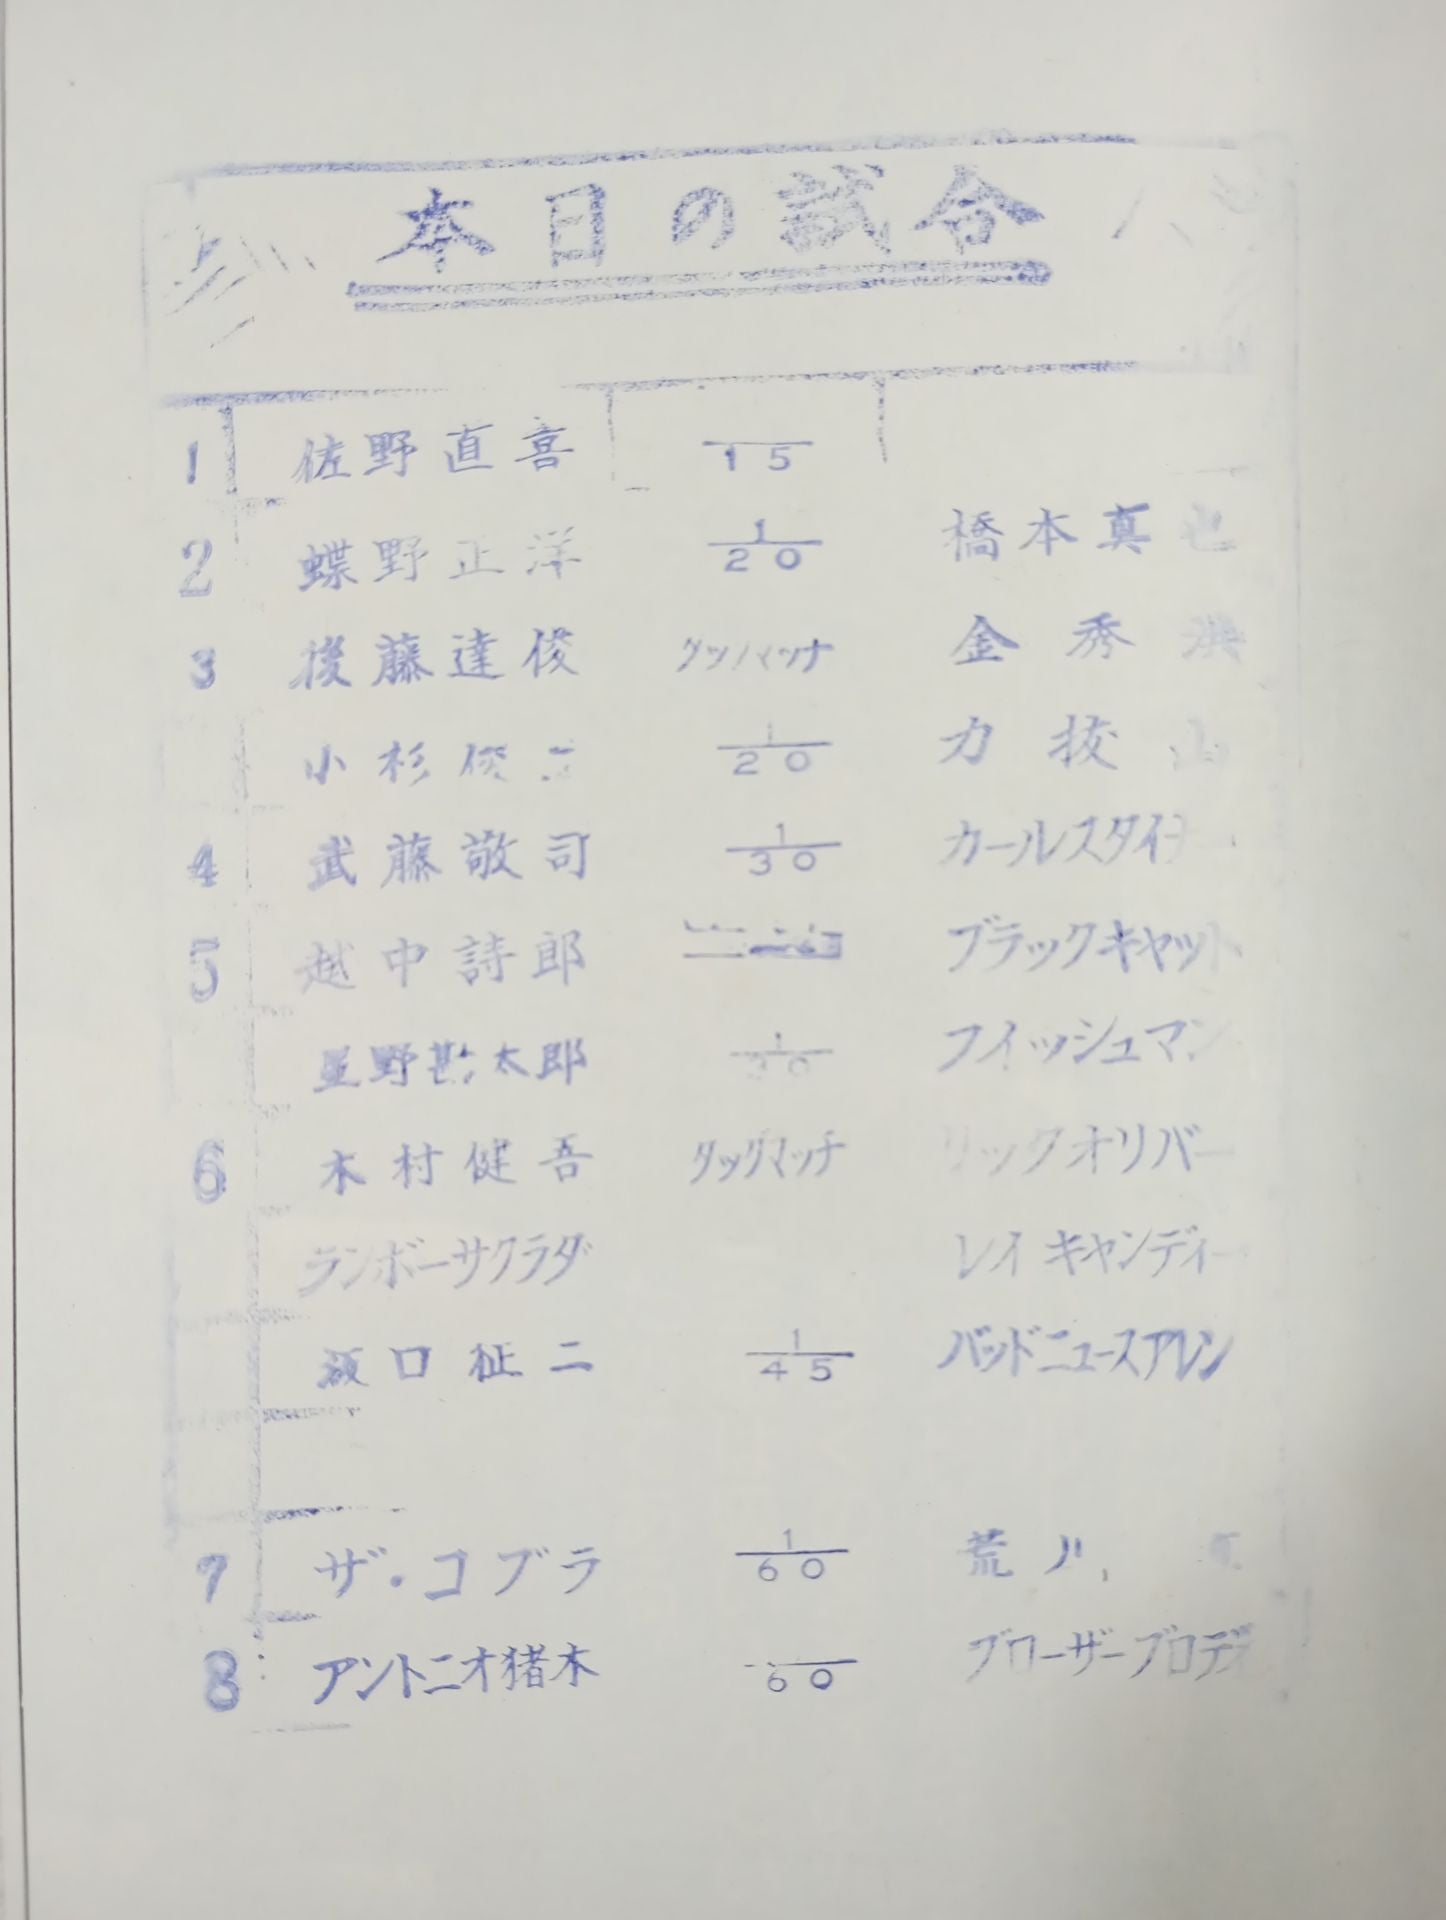 本日の試合
1 佐野直喜 15
2 蝶野正洋 1/20 橋本真也
3 後藤達俊 タッグマッチ 金秀洪
小杉俊二 1/20 力抜山
4 武藤敬司 1/30 カールスタイナー
5 越中詩郎 ブラックキャット
星野勘太郎 1/30 フィッシュマン
6 木村健吾 タッグマッチ リックオリバー
ランボーサクラダ レイキャンディー
坂口征二 1/45 バッドニュースアレン
7 ザ・コブラ 1/60 荒川
8 アントニオ猪木 60 ブローザーブロディ